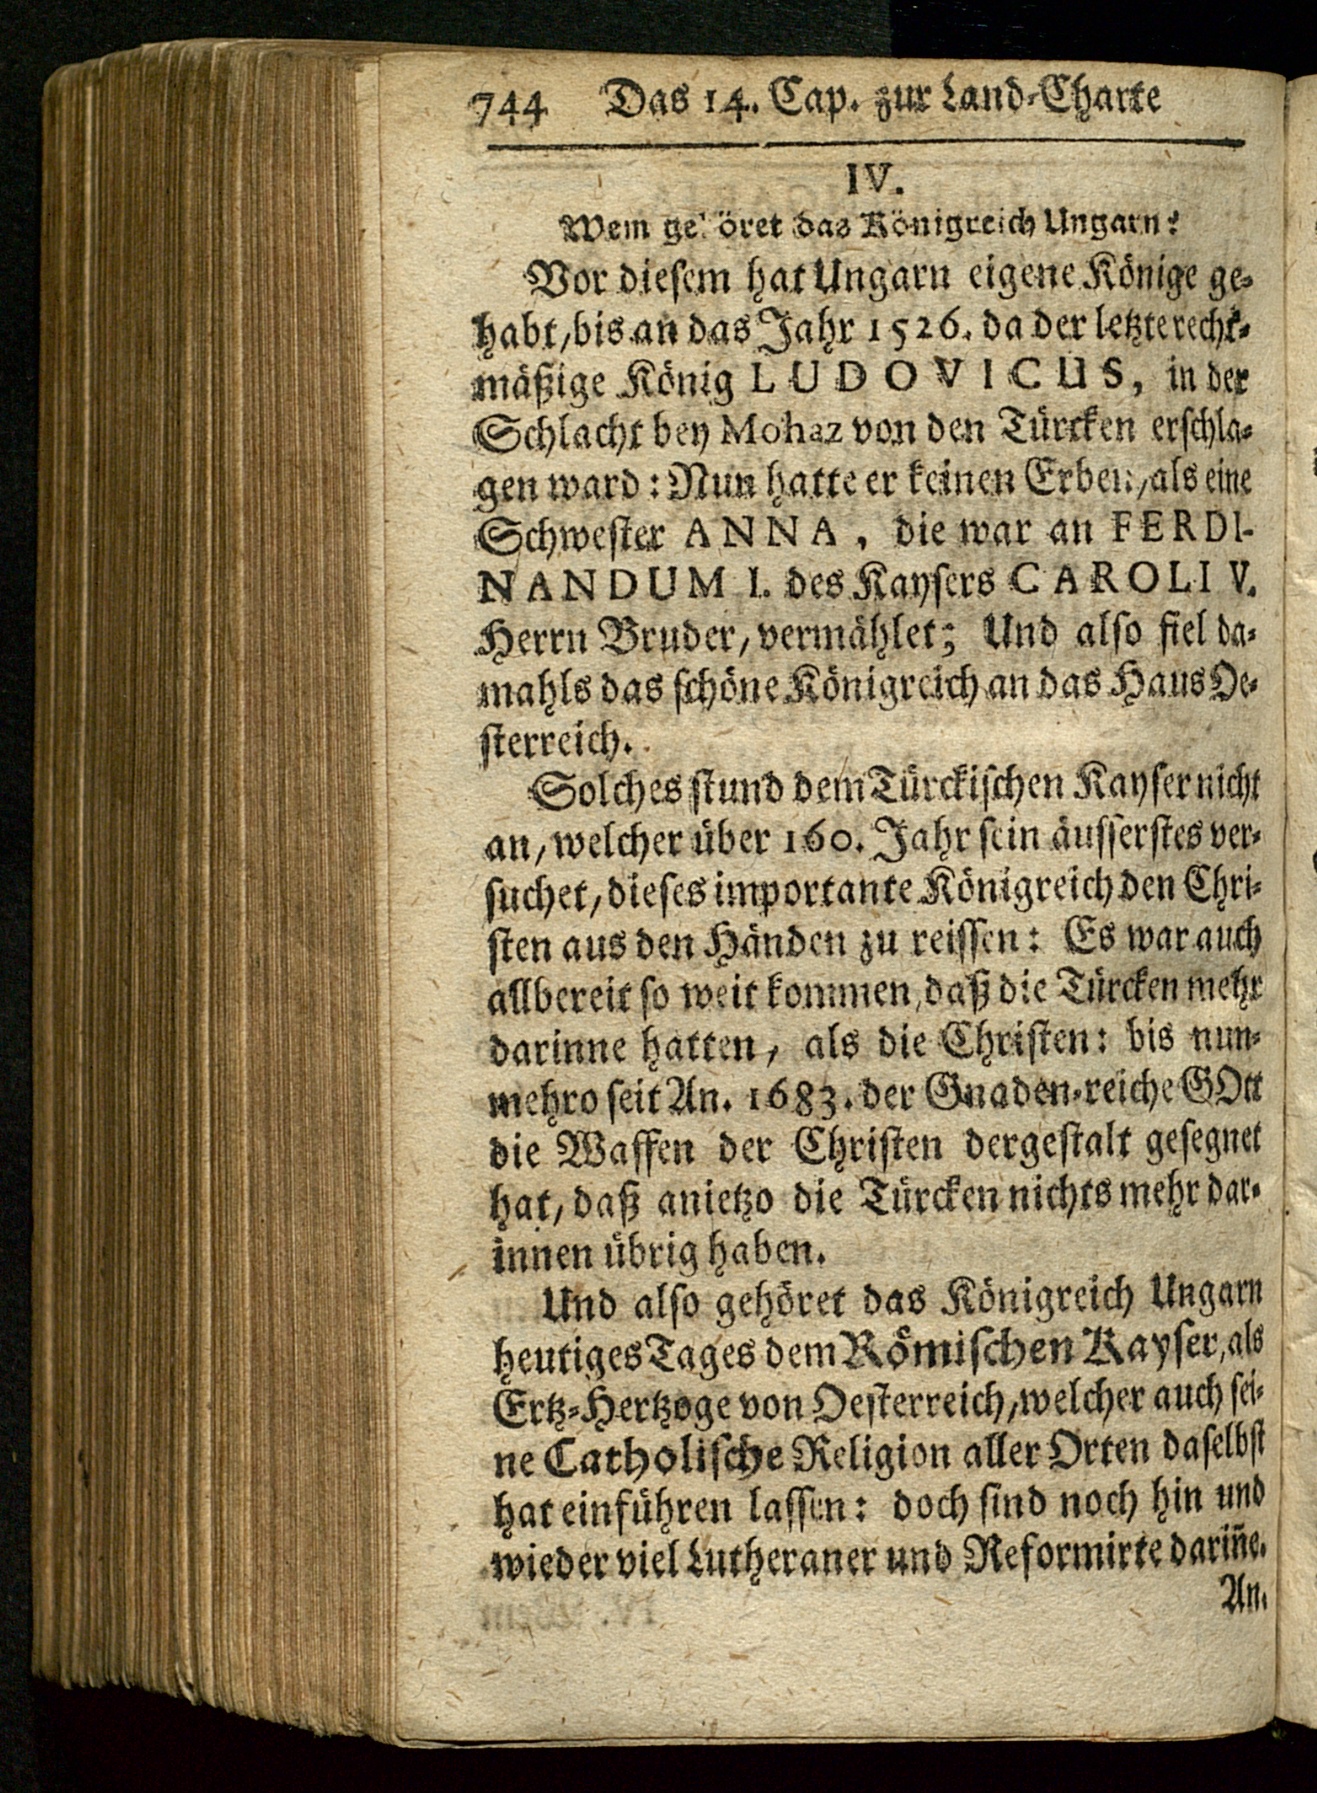 744 Das 14. Cap. zur Land-Charte
IV.
Wem gehöret das Königreich Ungarn?
Vor diesem hat Ungarn eigene Könige ge-
habt, bis an das Jahr 1526. da der letzte recht-
mäßige König LUDOVICUS, in der
Schlacht bey Mohaz von den Türcken erschla-
gen ward: Nun hatte er keinen Erben, als eine
Schwester ANNA, die war an FERDI-
NANDUM I. des Kaysers CAROLI V.
Herrn Bruder, vermählet; Und also fiel da-
mahls das schöne Königreich an das Haus Oe-
sterreich.
Solches stund dem Türckischen Kayser nicht
an, welcher über 160. Jahr sein äusserstes ver-
suchet, dieses importante Königreich den Chri-
sten aus den Händen zu reissen: Es war auch
allbereit so weit kommen, daß die Türcken mehr
darinne hatten, als die Christen: bis nun-
mehro seit An. 1683. der Gnaden-reiche GOtt
die Waffen der Christen dergestalt gesegnet
hat, daß anietzo die Türcken nichts mehr dar-
innen übrig haben.
Und also gehöret das Königreich Ungarn
heutiges Tages dem Römischen Kayser, als
Ertz-Hertzoge von Oesterreich, welcher auch sei-
ne Catholische Religion aller Orten daselbst
hat einführen lassen: doch sind noch hin und
wieder viel Lutheraner und Reformirte dariñe.
An.